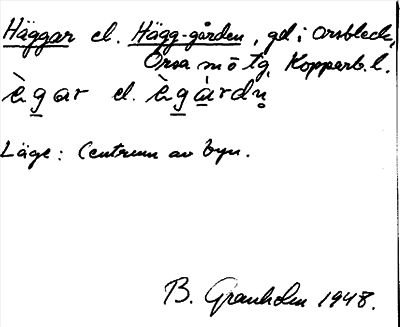 Häggar el. Hägg-gården, gd i Orsbleck,
Orsa sn ö tg, Kopparb. l.
ὲgar el. ὲgàrdn̥
Läge: Centrum av byn.
B. Granholm 1948.